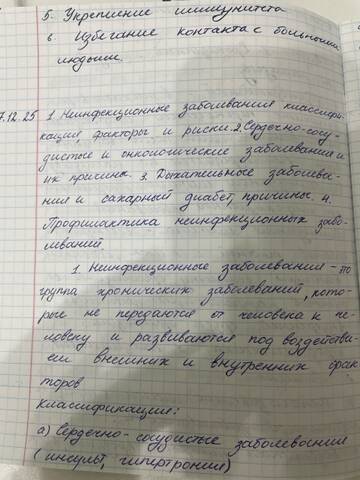 5. Укрепление иммунитета
6. Избегание контакта с больными
людьми.
7.12.25 1. Неинфекционные заболевания классифи-
кация, факторы и риски. 2. Сердечно-сосу-
дистые и онкологические заболевания и
их причины. 3. Дыхательные заболева-
ния и сахарный диабет, причины. 4.
Профилактика неинфекционных забо-
леваний.
1. Неинфекционные заболевания - это
группа хронических заболеваний, кото-
рые не передаются от человека к че-
ловеку и развиваются под воздействи-
ем внешних и внутренних фак
торов
Классификация:
а) Сердечно-сосудистые заболевания
(инсульт, гипертрония)